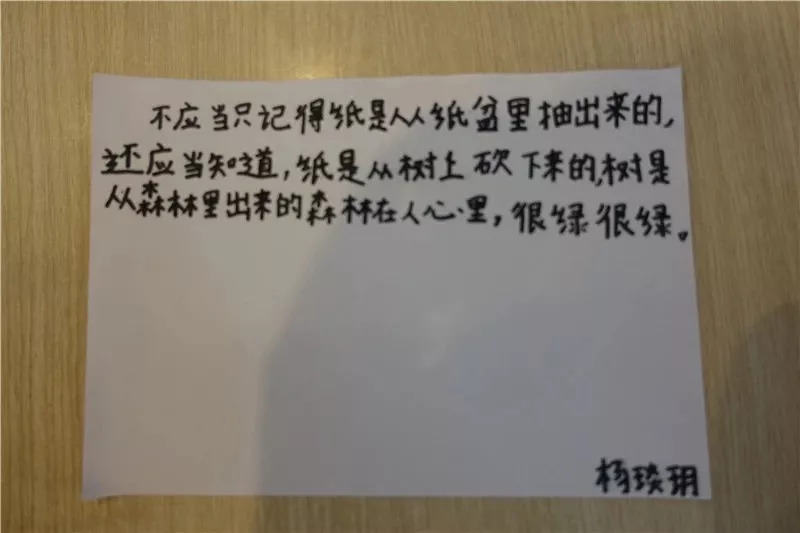 不应当只记得纸是从纸盆里抽出来的,
还应当知道,纸是从树上砍下来的,树是
从森林里出来的森林在人心里,很绿很绿。
杨琰玥